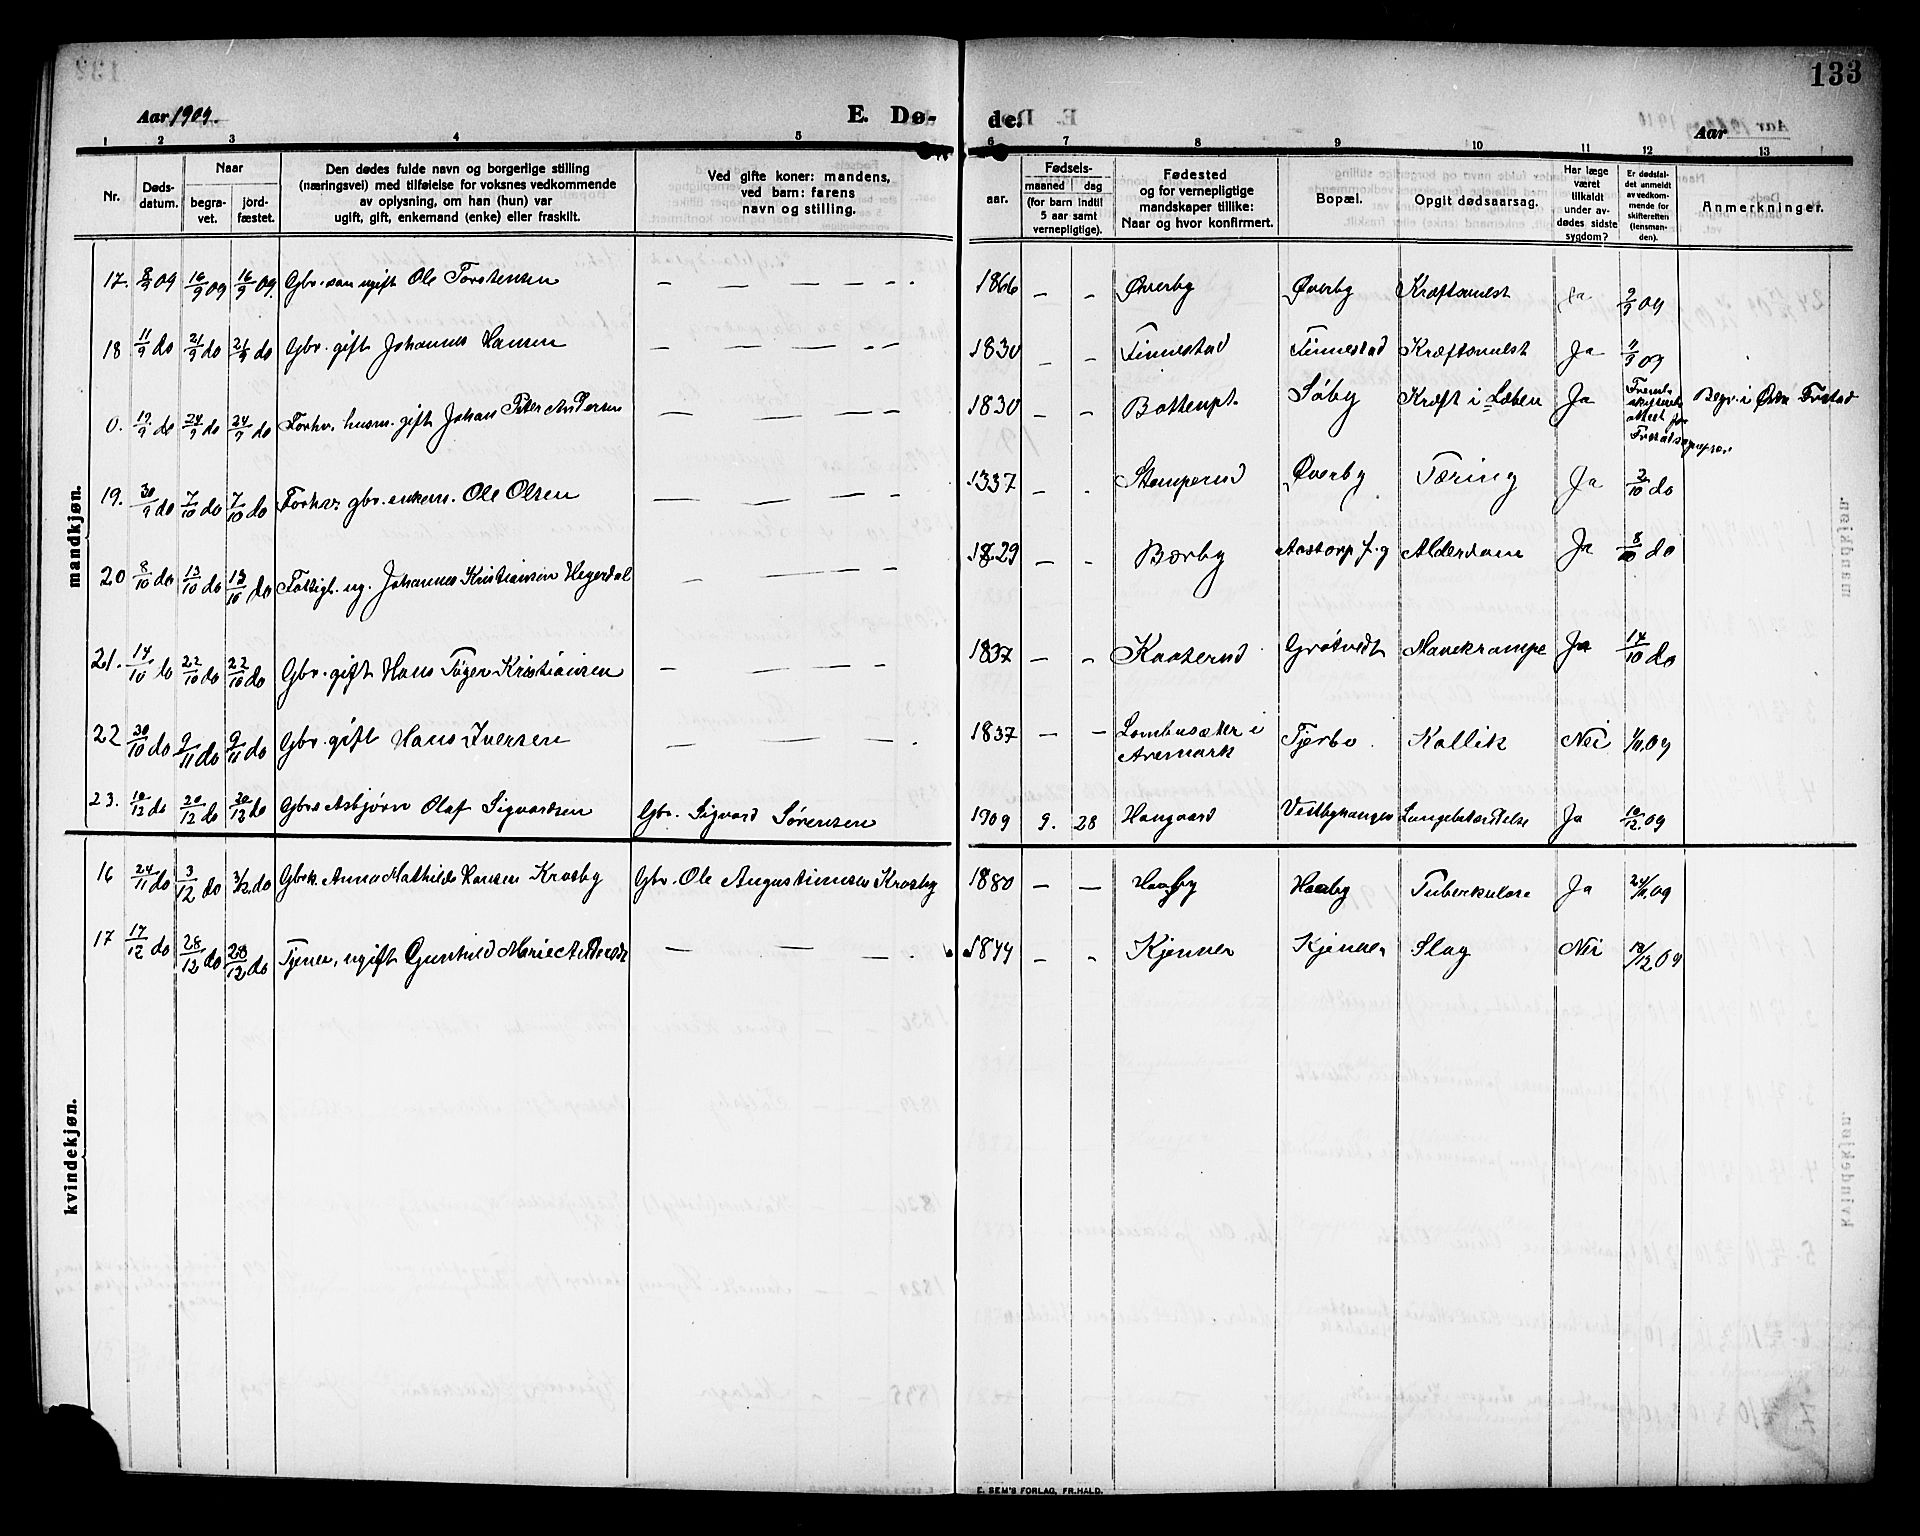 133
Aar 1909.
E. Dø-
de.
Aar
1 2 3 4 5 6 7 8 9 10 11 12 13
Nr.
Døds-
datum.
Naar
begra-
vet.
jord-
fæstet.
Den dødes fulde navn og borgerlige stilling
(næringsvei) med tilføielse for voksnes vedkommende
av oplysning, om han (hun) var
ugift, gift, enkemand (enke) eller fraskilt.
Ved gifte koner: mandens,
ved barn: farens
navn og stilling.
aar.
Fødsels-
maaned dag
(for barn indtil
5 aar samt
vernepligtige).
Fødested
og for vernepligtige
mandskaper tillike:
Naar og hvor konfirmert.
Bopæl.
Opgit dødsaarsag.
Har læge
været
tilkaldt
under av-
dødes sidste
sygdom?
Er dødsfal-
det anmeldt
av vedkom-
mende for
skifteretten
(lensman-
den).
Anmerkninger.
mandkjøn.
17. 8/9 09 16/9 09 16/9 09. Gbr. søn ugift Ole Torstensen — — — - . 1866 — — Øverby Øverby Kræftsvulst Ja 9/9 09
18 11/9 do 21/9 do 21/9 do Gbr. gift Johannes Hansen — — — - - 1830 — — Tinnestad Tinnestad Kræftsvulst Ja 11/9 09
0. 19/9 do 24/9 do 24/9 do Forhv. husm. gift Johan Peter Andersen — — — - 1830 — — Bottenpl. Søby Kræft i Læben Ja attest Begr. i
19. 30/9 do 7/10 do 7/10 do Forhv. gbr. enkem. Ole Olsen — — — - 1837 — - Stomperud Øverby Tæring Ja 2/10 do
20 8/10 do 13/10 do 13/10 do Fattigl. ug. Johannes Kristiansen Hegerdal — — — - 1829 — - Bærby Aastorp f.g Alderdom Ja 8/10 do
21. 14/10 do 22/10 do 22/10 do Gbr. gift Hans Kristiansen — — — - 1837 — - Kaaserud Grøtvedt Mavekrampe Ja 14/10 do
22 30/10 do 9/11 do 9/11 do Gbr. gift Hans Iversen — — — - 1837 — — i
Aremark Tjerbo Kollik Nei 1/11.09
23. 10/12 do 20/12 do 20/12 do Gbrs Asbjørn Olaf Sigvardsen Gbr. Sigvard Sørensen 1909 9. 28 Haugaard Vestbyhaugen Lungebetændelse Ja 10/12.09
kvindekjøn.
16 24/11 do 3/12 do 3/12 do Gbrk. Anna Mathilde Hansen Krosby Gbr. Ole Augustinusen Krosby 1880 — — Haaby Haaby Tuberkulose Ja 24/11.09
17 17/12 do 28/12 do 28/12 do Tjener, ugift Gunhild Marie Andersdt — — — 1844 — - Kjenner Kjenner Slag Nei 18/12 09
E. SEM'S FORLAG, FR.HALD.